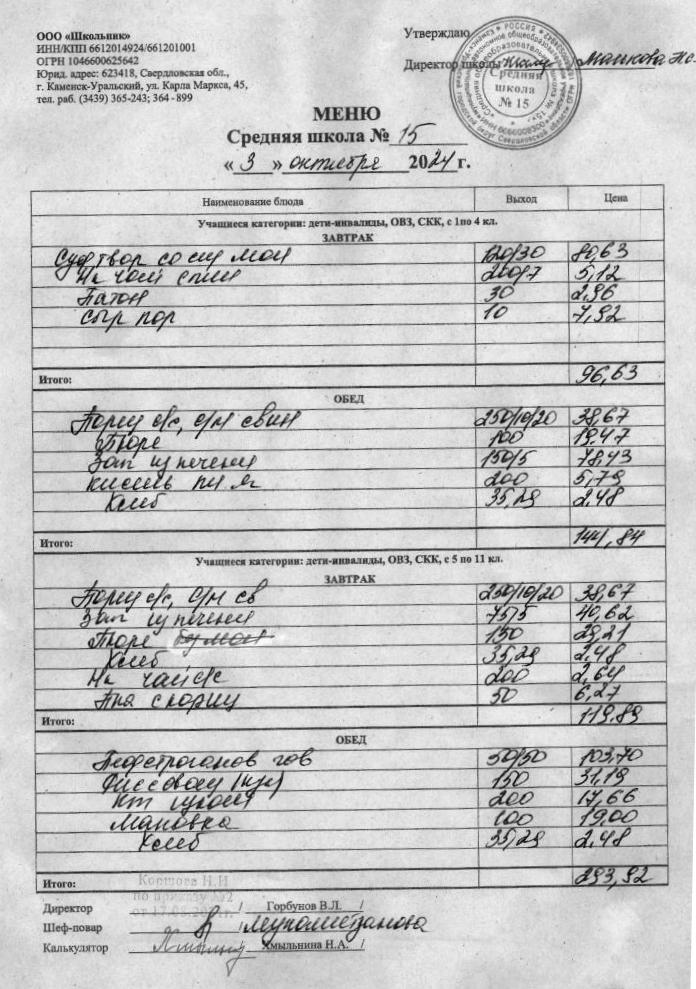 ООО «Школьник»
ИНН/КПП 6612014924/661201001
ОГРН 1046600625642
Юрид. адрес: 623418, Свердловская обл.,
г. Каменск-Уральский, ул. Карла Маркса, 45,
тел. раб. (3439) 365-243; 364 - 899
Утверждаю
Директор школы
Средняя
школа
№ 15
МЕНЮ
Средняя школа № 15
« 3 » октября 2024 г.
Наименование блюда Выход Цена
Учащиеся категории: дети-инвалиды, ОВЗ, СКК, с 1по 4 кл.
ЗАВТРАК
Суф твор со сгу мол 120/30 80,63
На чай слим 200/7 5,12
Батон 30 2,96
Сыр пор 10 7,92
Итого: 96,63
ОБЕД
Борщ с/с, с/м свин 250/10/20 38,67
Пюре 100 19,47
Зап из печени 150/5 78,43
кисель пл яг 200 5,79
Хлеб 35,29 2,48
Итого: 144,84
Учащиеся категории: дети-инвалиды, ОВЗ, СКК, с 5 по 11 кл.
ЗАВТРАК
Борщ с/с, с/м св 250/10/20 38,67
Зап из печени 75/5 40,62
Пюре 150 29,21
Хлеб 35,29 2,48
На чай с/с 200 2,64
Бпа с кориц 50 6,27
Итого: 119,89
ОБЕД
Бефстроганов гов 50/50 103,70
150 31,19
Кт изюм 200 17,66
Мановка 100 19,00
Хлеб 35,29 2,48
Итого: 293,92
Коршова Н.И
по приказу №2
Директор / Горбунов В.Л. /
Шеф-повар
Калькулятор / Хмыльнина Н.А. /